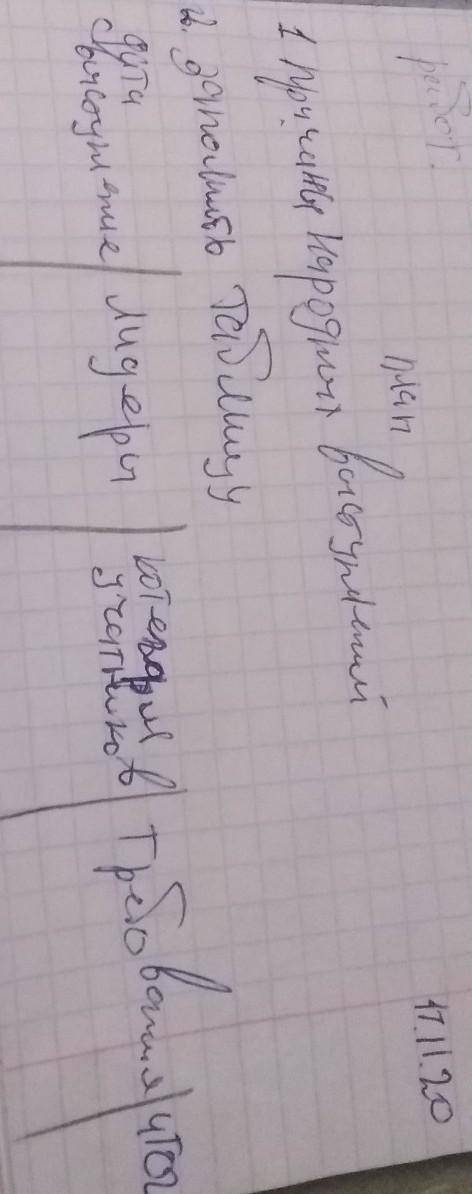 работ.
план
17.11.20
1 Причины народных выступлений
2. Заполнить таблицу
дата выступление | Лидеры | категории участников | Требования | итог